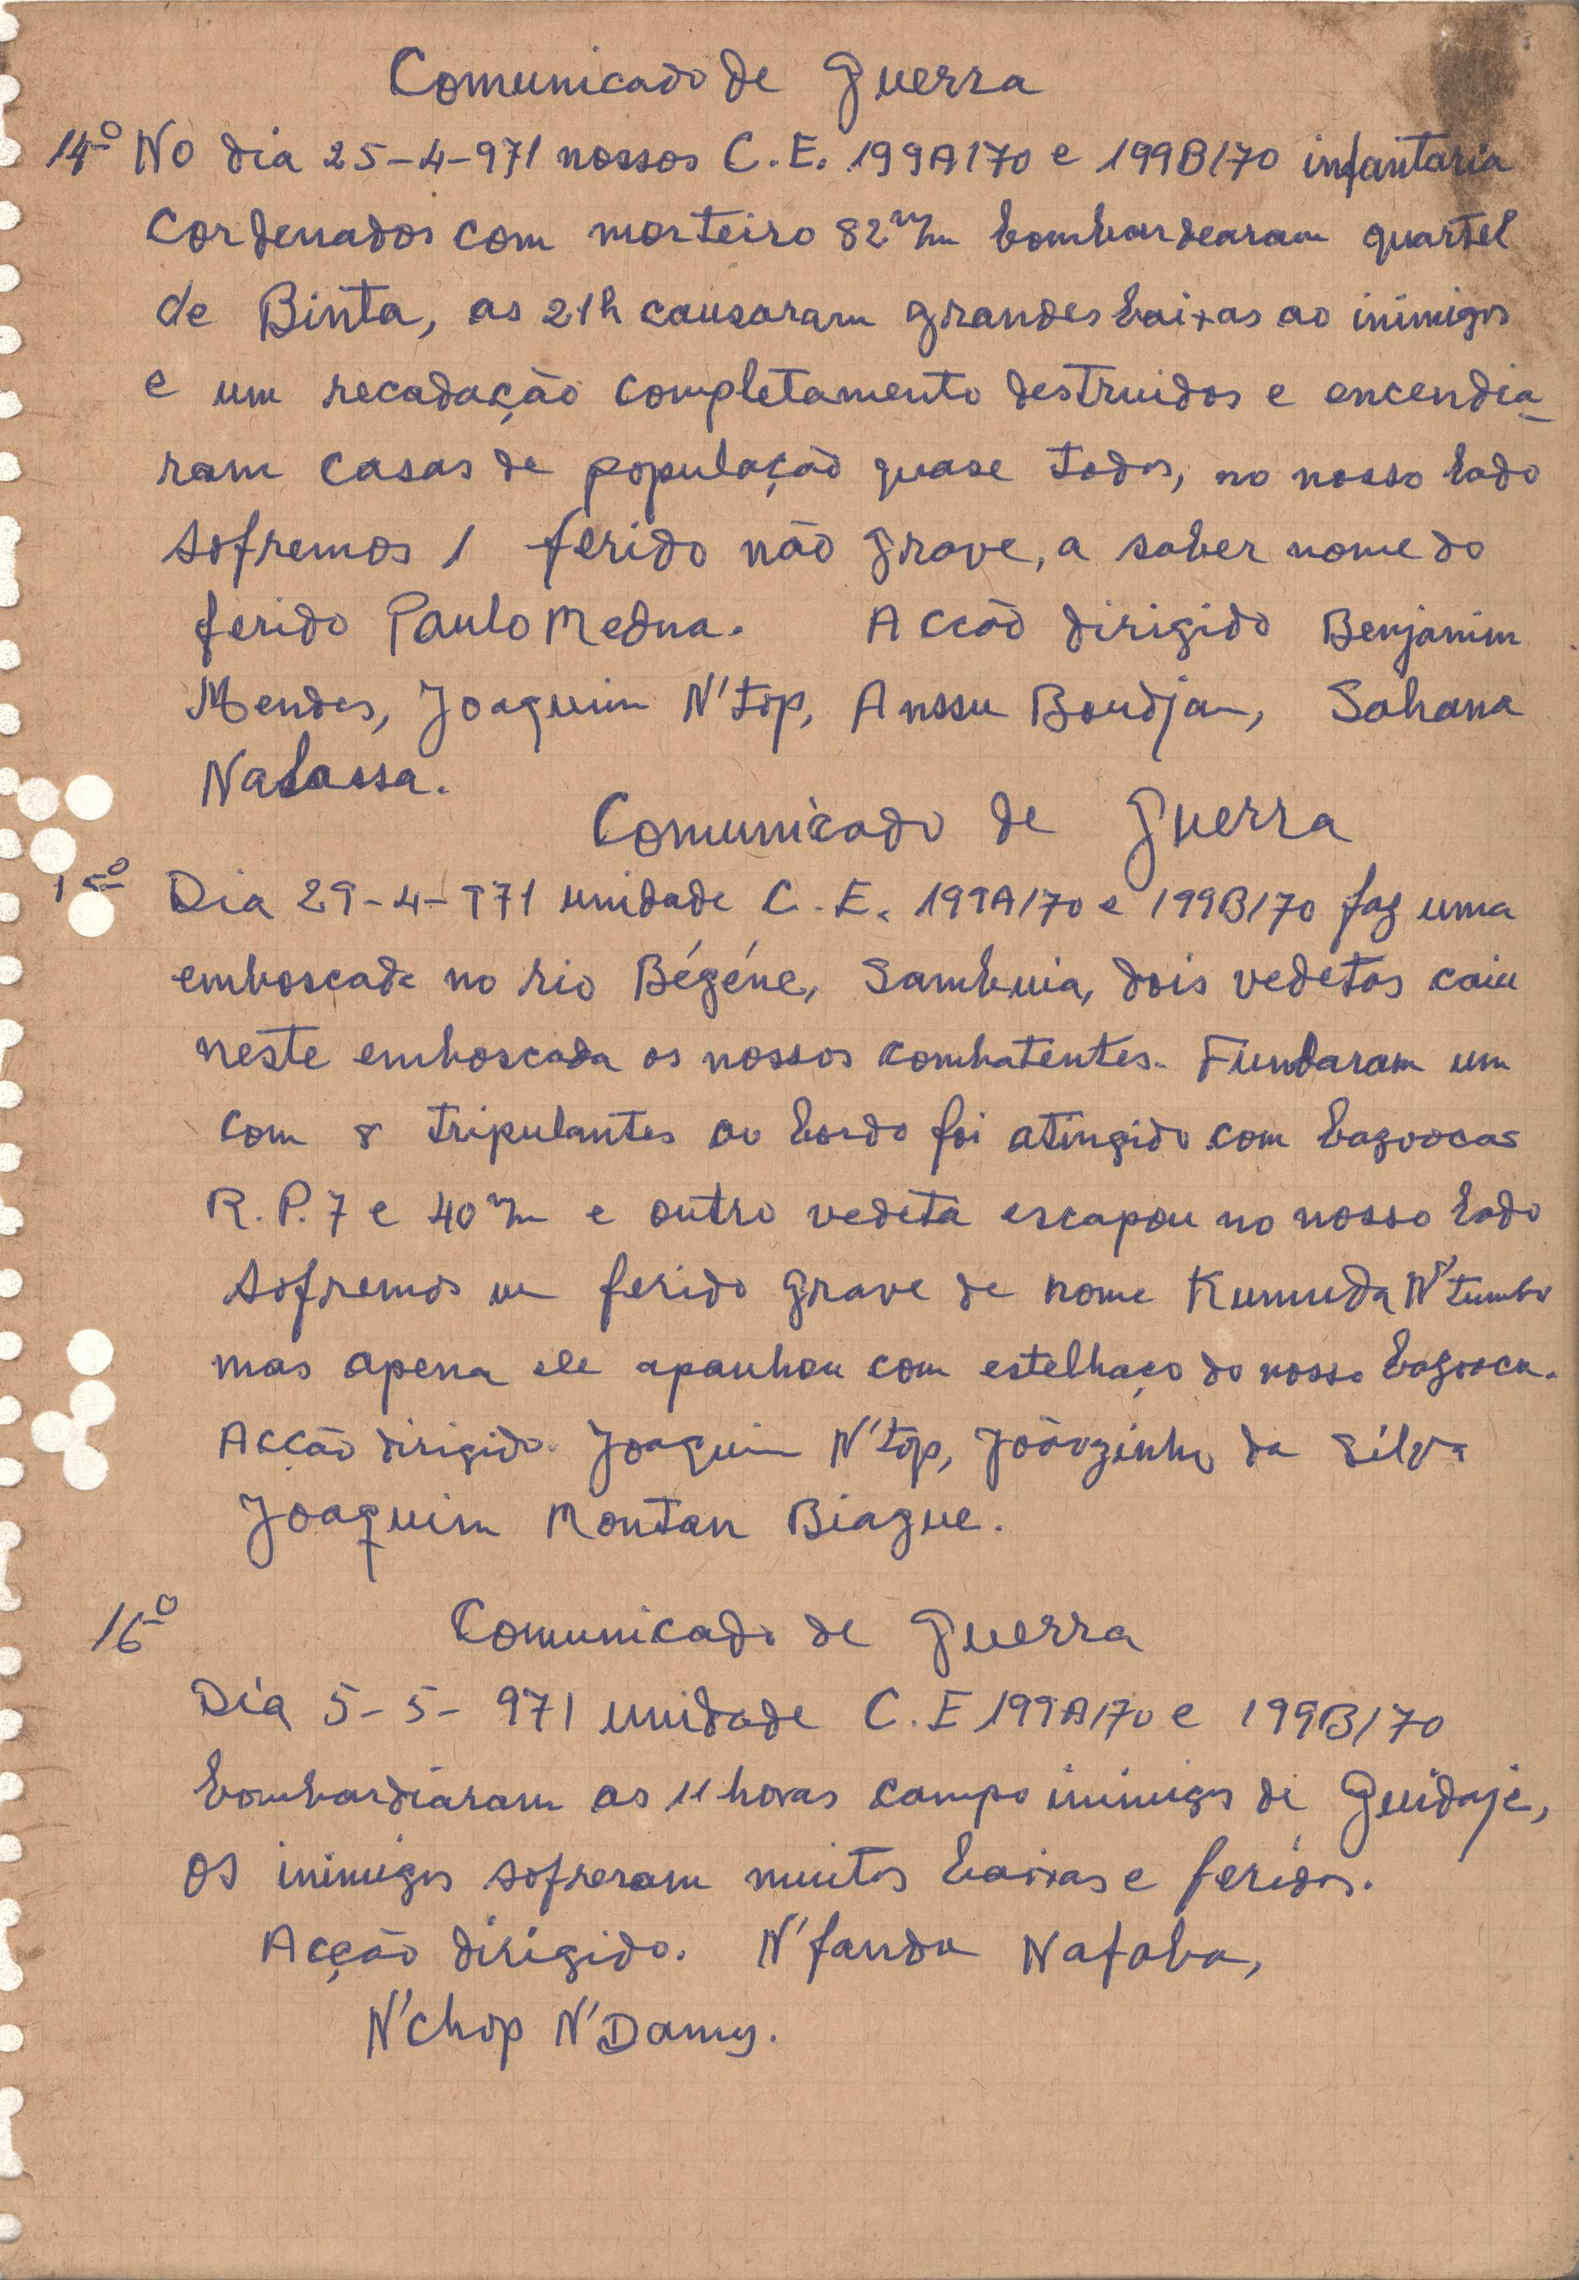 Comunicado de Guerra
14º No dia 25-4-971 nossos C.E. 199A/70 e 199B/70 infantaria
Cordenados com morteiro 82 m/m bombardearam quartel
de Binta, as 21h causaram grandes baixas ao inimigos
e um recadação completamento destruidos e encendia_
ram casas de população quase todos, no nosso lado
sofremos 1 ferido não grave, a saber nome do
ferido Paulo Medna. Accão dirigido Benjamim
Mendes, Joaquim N'top, Anssu Boudjan, Sahana
Nalassa.
Comunicado de Guerra
15º Dia 29-4-971 unidade C.E. 199A/70 e 199B/70 faz uma
emboscada no rio Bégéne, Sambuia, dois vedetas caiu
neste emboscada os nossos combatentes. Fundaram um
com 8 tripulantes ao bordo foi atingido com bazoocas
R.P.7 e 40 m/m e outro vedeta escapou no nosso lado
sofremos um ferido grave de nome Kumuda N'tumbo
mas apena ele apanhou com estelhaço do nosso bazooca.
Acção dirigido Joaquim N'top, Joãozinho da Silva
Joaquim Montan Biague.
16º Comunicado de Guerra
Dia 5-5-971 unidade C.E 199A/70 e 199B/70
bombardiáram as 11 horas campo inimigos de Guidaje,
os inimigos sofreram muitos baixas e feridos.
Acção dirigido. N'fanda Nafaba,
N'Chop N'Damy.